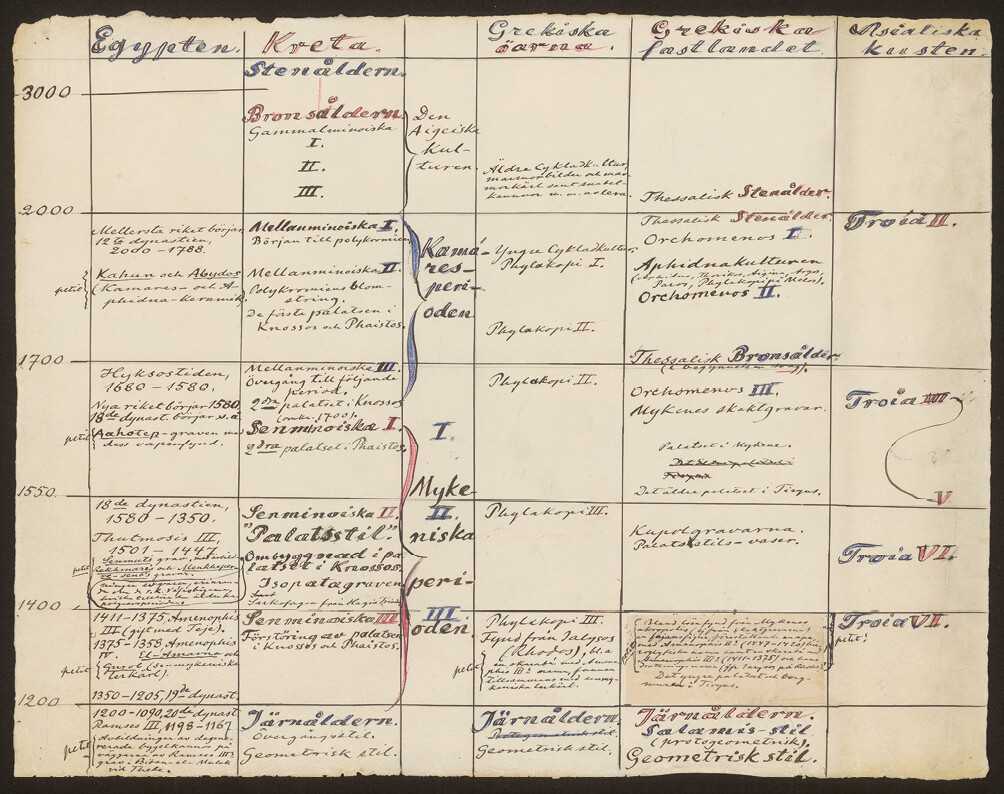 Egypten.
Kreta.
Grekiska
öarna.
Grekiska
fastlandet
Asiatiska
kusten.
Stenåldern.
3000
Bronsåldern
Gammalminoiska
I.
II.
III.
Den
Aigeiska
kul-
turen.
Äldre Cykladkultur,
marmorbilder och mar-
morkärl samt snabel-
kannor m.m. av lera.
Thessalisk Stenålder.
2000
Mellersta riket börjar,
12te dynastien,
2000 - 1788.
petit
Kahun och Abydos
(Kamares- och A-
phidna-keramik)
Mellanminoiska I.
Början till polykromien
Mellanminoiska II.
Polykromiens blom-
string.
De förste palatsen i
Knossos och Phaistos.
Kamá-
res-
peri-
oden
Yngre Cykladkultur
Phylakopi I.
Phylakopi II.
Thessalisk Stenålder.
Orchomenos I.
Aphidnakulturen
(Aphidna, Thorikos, Aigina, Argos,
Paros, Phylakopi på Melos).
Orchomenos II.
Thessalisk Bronsålder
Troia II.
1700
Hyksostiden,
1680 - 1580.
Nya riket börjar 1580
18de dynast. börjar
petit
Aahotep-graven med
dess vapenfynd.
Mellanminoiska III.
Övergång till följande
period.
2dra palatset i Knossos
(omkr. 1700).
Senminoiska I.
2dra palatset i Phaistos.
I.
Phylakopi II.
Orchomenos III.
Mykenes skaktgravar.
Palatset i Mykene.
Det äldre palatset i Tiryns.
Troia III
V
1550
18de dynastien,
1580 - 1350.
Thutmosis III,
1501 - 1447.
petit
Senmuts grav,
Rekhmares och Menkheper-
re-senbs gravar.
Senminoiska II.
"Palatsstil".
Ombyggnad i pa-
latset i Knossos.
Isopatagraven
Sarkofagen från Hagia Triada
Myke
II.
niska
peri-
III.
oden
Phylakopi III.
Kupolgravarna.
Palatsstils-vaser.
Troia VI.
1400
1411-1375, Amenophis
III (gift med Taje).
1375-1358 Amenophis
IV. El-Amarna
petit
Gurob (senmykeniska
lerkärl).
1350-1205, 19de dynast.
Senminoiska III
Förstöring av palatsen
i Knossos och Phaistos.
Phylakopi III.
Fynd från Jalysos
(Rhodos), bl.a
petit
en skarabé med Ameno-
phis III:s namn, funnen
tillsammans med senmy-
keniska lerkärl.
Bland lösa fynd från Mykenes
Amenophis III's (1411-1375) och hans
Det yngre palatset och borg-
muren i Tiryns.
Troia VI.
petit!
1200
1200-1090, 20de dynast
Ramses III, 1198-1167
petit
Avbildningar av degene-
rerade bygelkannor på
väggarna av Ramses III:s
grav i Biban-el-Muluk
vid Thebe.
Järnåldern.
Övergångsstil.
Geometrisk stil.
Järnåldern.
Protogeometrisk stil.
Geometrisk stil.
Järnåldern.
Salamis-stil
(protogeometrisk).
Geometrisk stil.